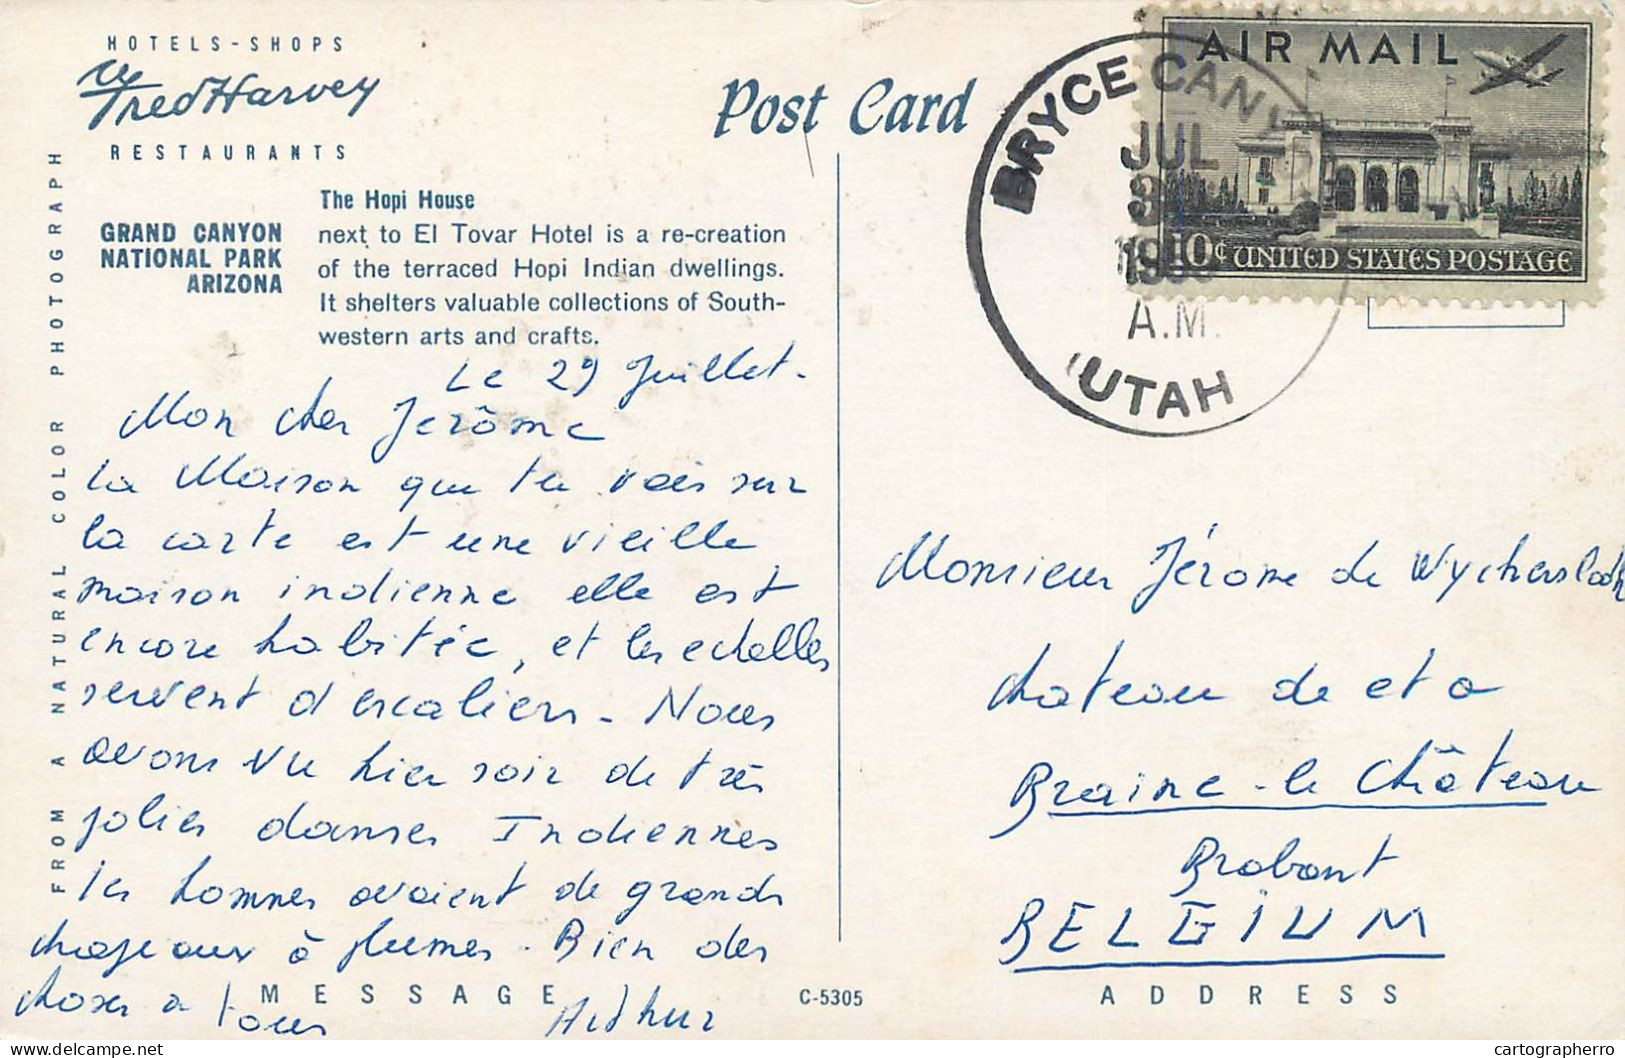 HOTELS-SHOPS
Fred Harvey
RESTAURANTS
GRAND CANYON
NATIONAL PARK
ARIZONA
The Hopi House
next to El Tovar Hotel is a re-creation
of the terraced Hopi Indian dwellings.
It shelters valuable collections of South-
western arts and crafts.
FROM A NATURAL COLOR PHOTOGRAPH
Le 29 Juillet.
Mon cher Jerôme
la Maison que tu vois sur
la carte est une vieille
maison indienne elle est
encore habitée, et les echelles
servent d'escaliers - Nous
avons vu hier soir de très
jolies danses Indiennes
les hommes avaient de grands
chapeaux à plumes. Bien des
choses a tous
Arthur
MESSAGE
C-5305
Post Card
BRYCE CANYON
JUL
A.M.
UTAH
AIR MAIL
10¢ UNITED STATES POSTAGE
Monsieur Jérome de
chateau de et a
Braine-le Château
Brabant
BELGIUM
ADDRESS
delcampe.net
cartographerro